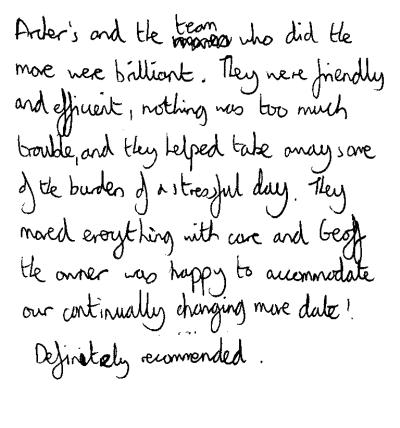 Archer's and the team who did the
move were brilliant. They were friendly
and efficient, nothing was too much
trouble, and they helped take away some
of the burden of a stressful day. They
moved everything with care and Geoff
the owner was happy to accommodate
our continually changing move date!
Definitely recommended.